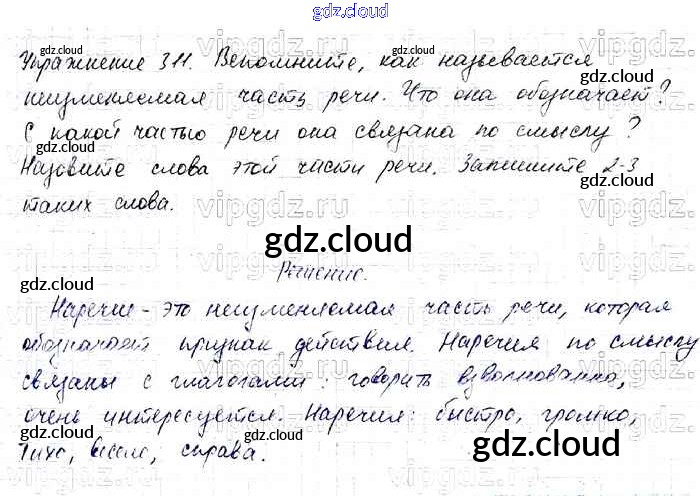 gdz.cloud
Упражнение 311. Вспомните, как называется
неизменяемая часть речи. Что она обозначает?
С какой частью речи она связана по смыслу?
Назовите слова этой части речи. Запишите 2-3
таких слова.
gdz.cloud
Решение.
Наречие - это неизменяемая часть речи, которая
обозначает признак действия. Наречия по смыслу
связаны с глаголами: говорить взволнованно,
очень интересуется. Наречия: быстро, громко,
тихо, весело, справа.
gdz.cloud